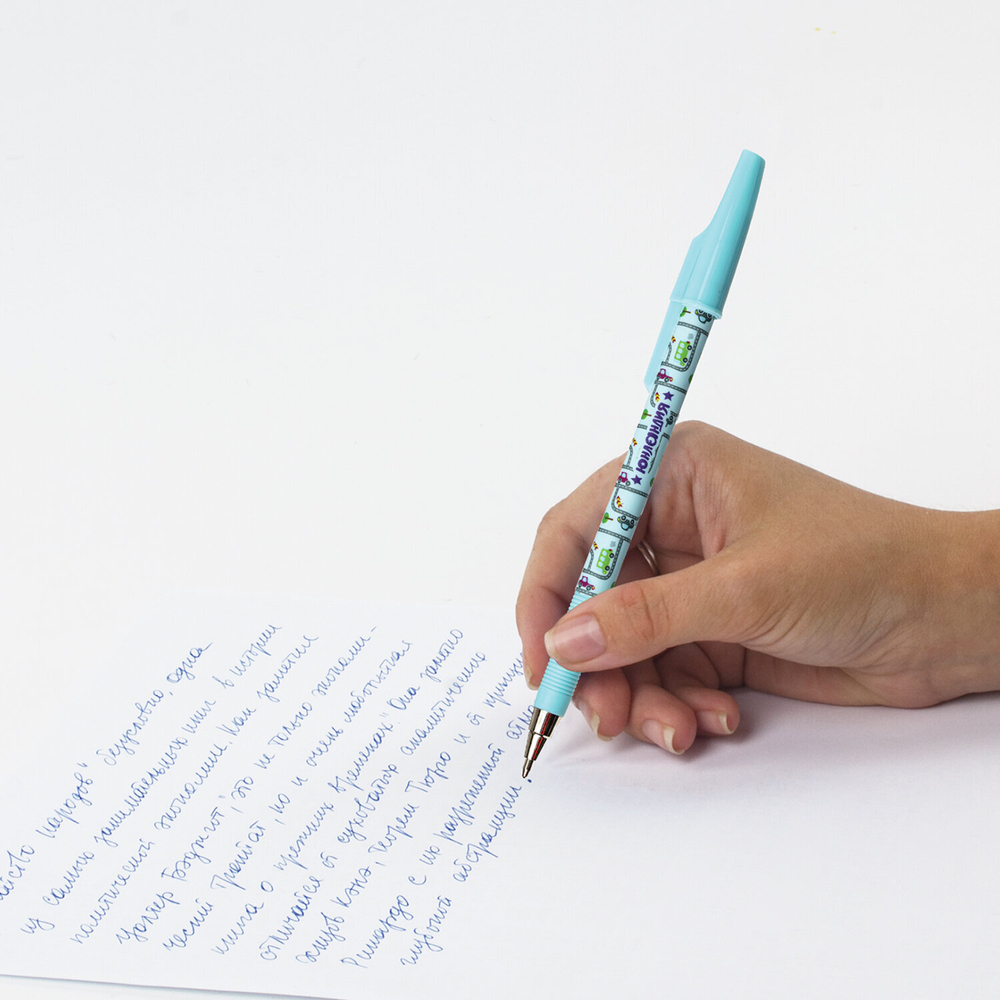 йство народов" безусловно, одна
из самых занимательных книг в истории
политической экономии. Как заметил
Уолтер Бэджгот, это не только экономи-
ческий трактат, но и очень любопытная
книга о прежних временах". Она заметно
отличается от суховатых аналитических
опусов Кэнэ, теорем Тюрго и от принци
Рикардо с их разреженной ат
глубокой абстракции.
ЮНЛАНДИЯ